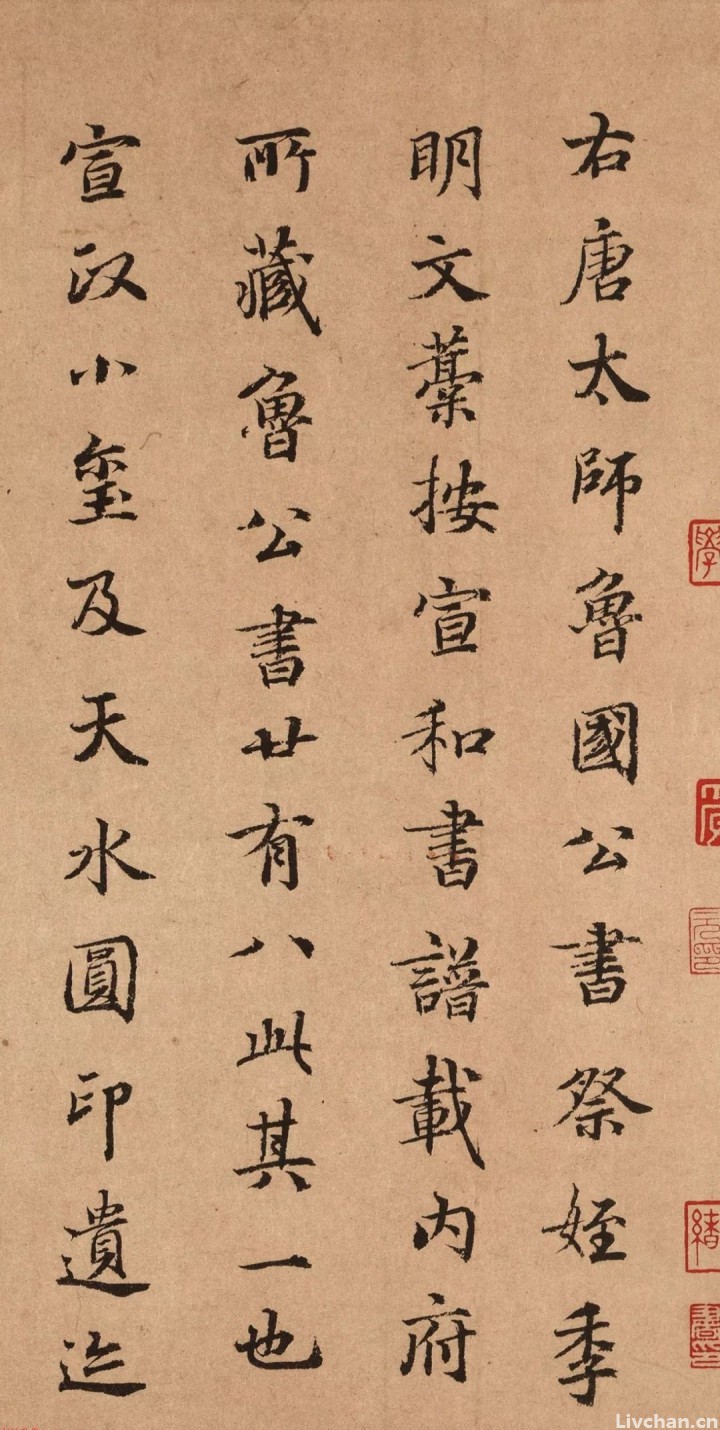 右唐太師魯國公書祭姪季
眀文藳按宣和書譜載内府
所藏魯公書廿有八此其一也
宣政小玺及天水圓印遺迹
Livchan.cn